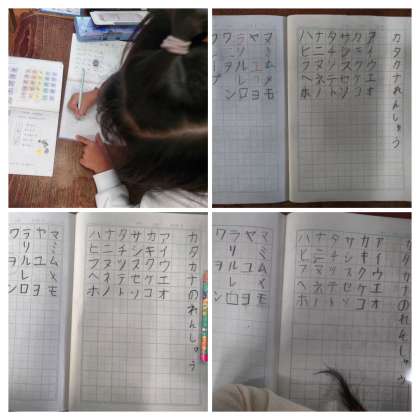 カタカナれんしゅう
アイウエオ
カキクケコ
サシスセソ
タチツテト
ナニヌネノ
ハヒフヘホ
マミムメモ
ヤユヨ
ラリルレロ
カタカナのれんしゅう
アイウエオ
カキクケコ
サシスセソ
タチツテト
ナニヌネノ
ハヒフヘホ
マミムメモ
ヤユヨ
ラリルレロ
ワヲン
カタカナのれんしゅう
アイウエオ
カキクケコ
サシスセソ
タチツテト
ナニヌネノ
ハヒフヘホ
マミムメモ
ヤユヨ
ラリルレロ
ワヲン